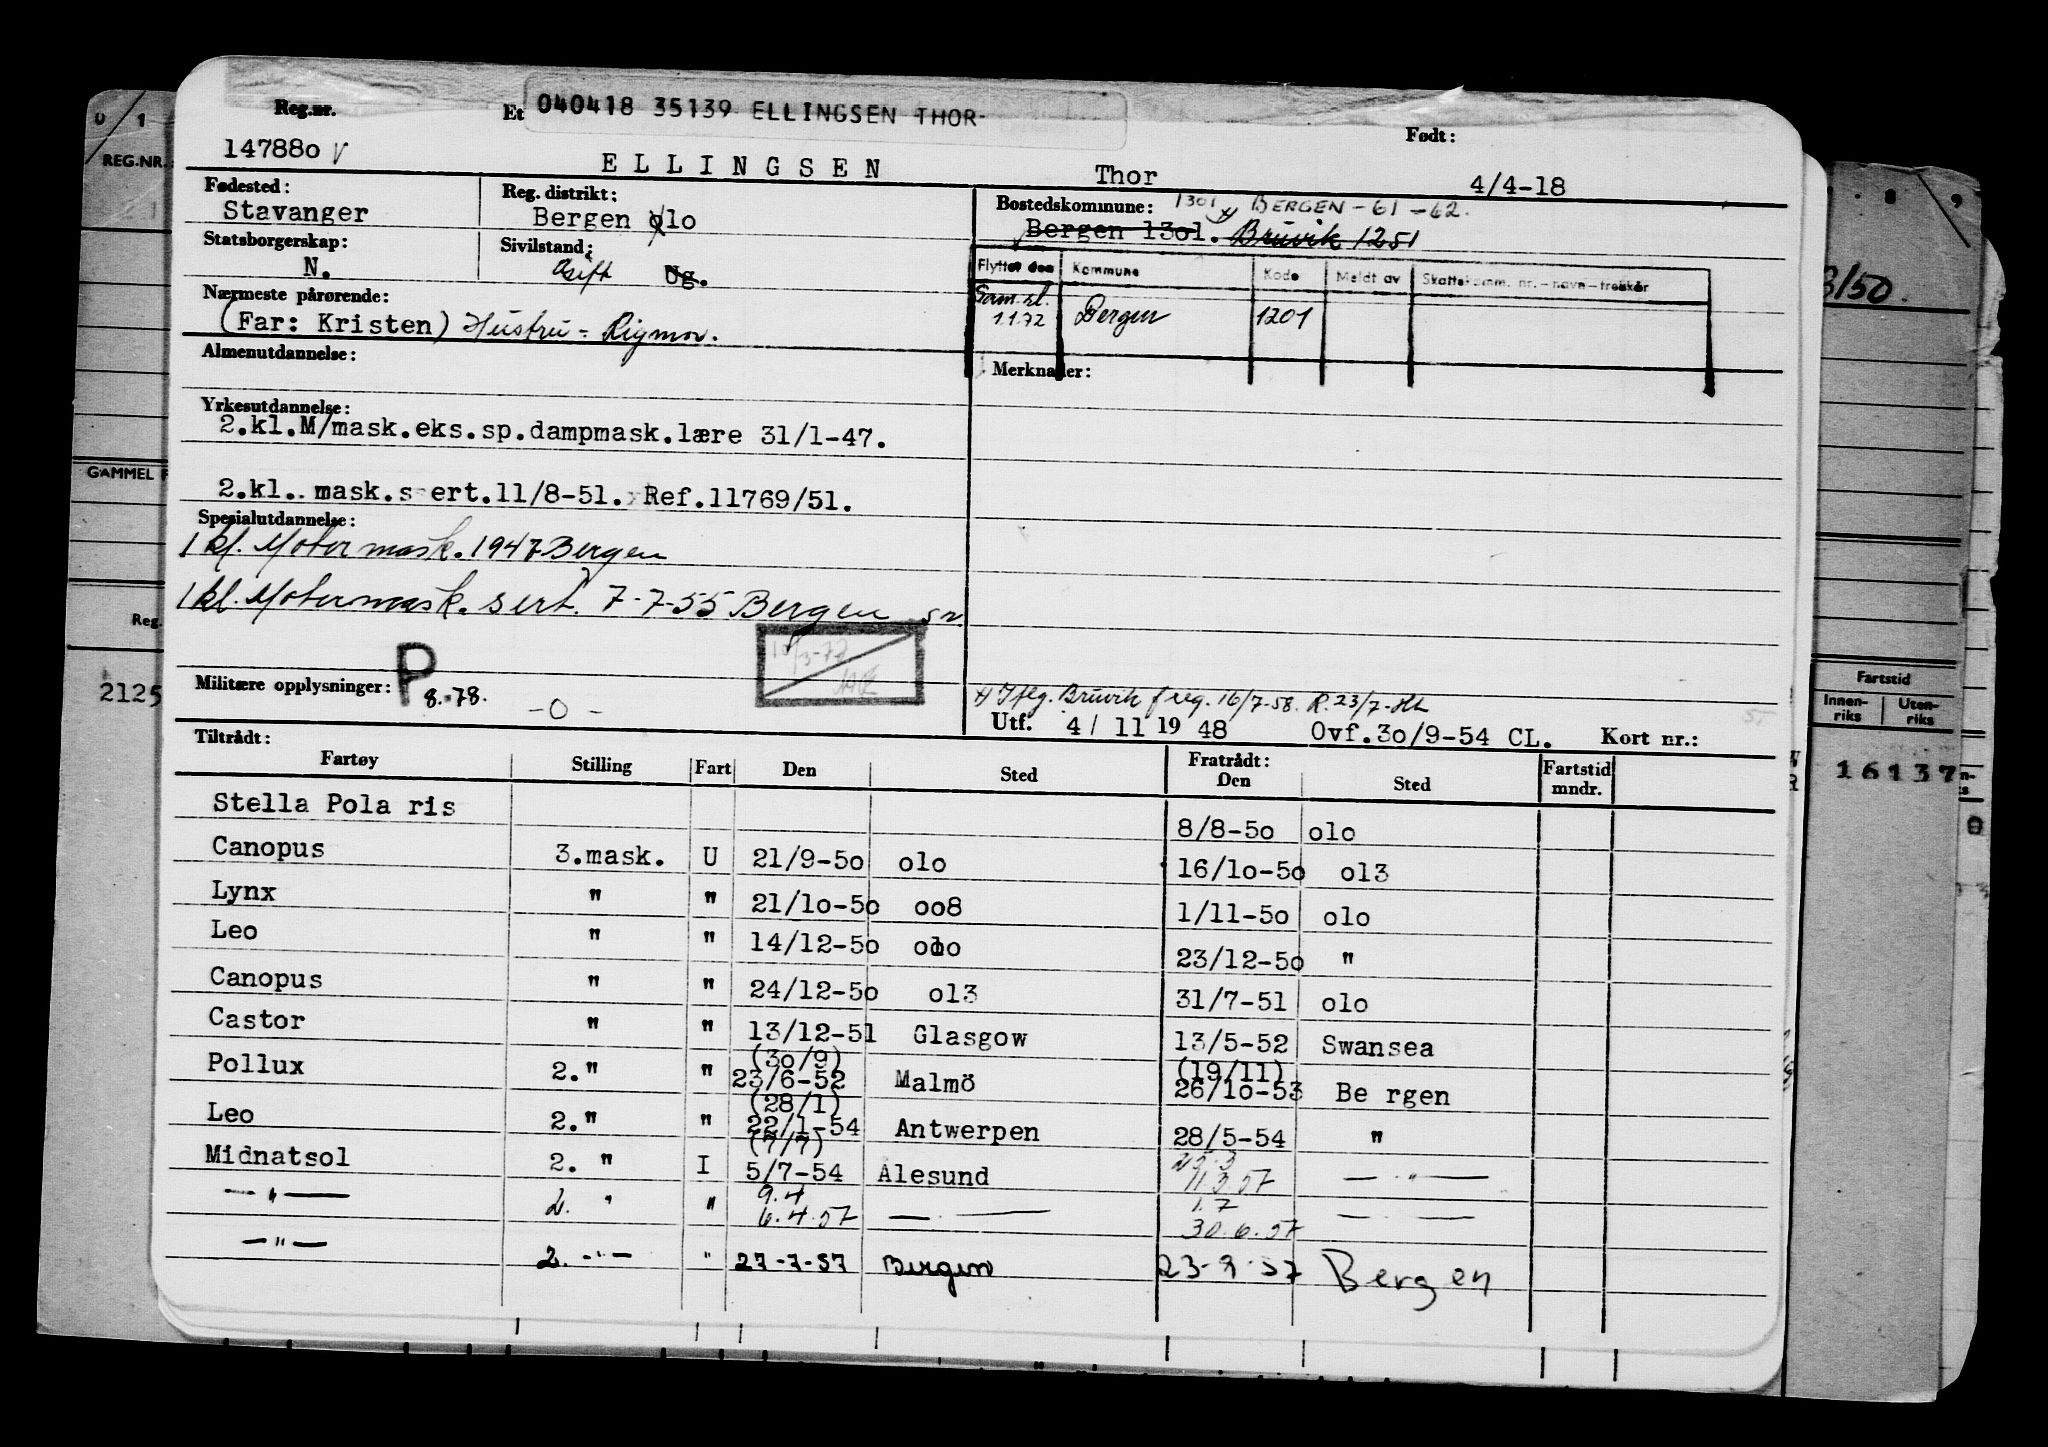 Reg.nr. Et 040418 35139 ELLINGSEN THOR Født:
14788o V ELLINGSEN Thor 4/4-18
Fødested: Reg. distrikt: Bostedskommune: 1301 x) BERGEN - 61 - 62.
Stavanger Bergen olo Bergen 13ol. Bruvik 1251
Statsborgerskap: Sivilstand:
N. Gift Ug.
Flyttet den Kommune Kode Meldt av Skattekomm. nr. - navn - trekkår
Sam.sl. 1.1.72 Bergen 1201
Nærmeste pårørende:
(Far: Kristen) Hustru = Rigmor.
Almenutdannelse:
Merknader:
Yrkesutdannelse:
2.kl.M/mask.eks.sp.dampmask.lære 31/1-47.
2.kl.. mask.s ert.11/8-51. Ref.11769/51.
Spesialutdannelse:
1 kl. Motormask. 1947 Bergen
1 kl. Motormask. sert. 7-7-55 Bergen
P 8.-78.
Militære opplysninger: -0-
x) Iflg. Bruvik f reg. 16/7-58. R. 23/7-
Utf. 4/ 11 19 48 Ovf.3o/9-54 CL. Kort nr.:
Tiltrådt: Fratrådt:
Fartøy Stilling Fart Den Sted Den Sted Fartstid mndr.
Stella Pola ris 8/8-5o olo
Canopus 3.mask. U 21/9-5o olo 16/1o-5o ol3
Lynx " " 21/1o-5o oo8 1/11-5o olo
Leo " " 14/12-5o olo 23/12-5o "
Canopus " " 24/12-5o ol3 31/7-51 olo
Castor " " 13/12-51 Glasgow 13/5-52 Swansea
(3o/9) (19/11)
Pollux 2." " 23/6-52 Malmö 26/1o-53 Be rgen
(28/1)
Leo 2." " 22/1-54 Antwerpen 28/5-54 "
(7/7)
Midnatsol 2. " I 5/7-54 Ålesund 11.3.57 — " —
9.4 1.7
— " — 2. " " 6.4.57 — — 30.6.57 — —
— " — 2. -"- " 27-7-57 Bergen 23-9-57 Bergen
0/1
REG.NR.
GAMMEL F
Reg.
2125
8 9
3/50.
Fartstid
Innen-riks Uten-riks
16137